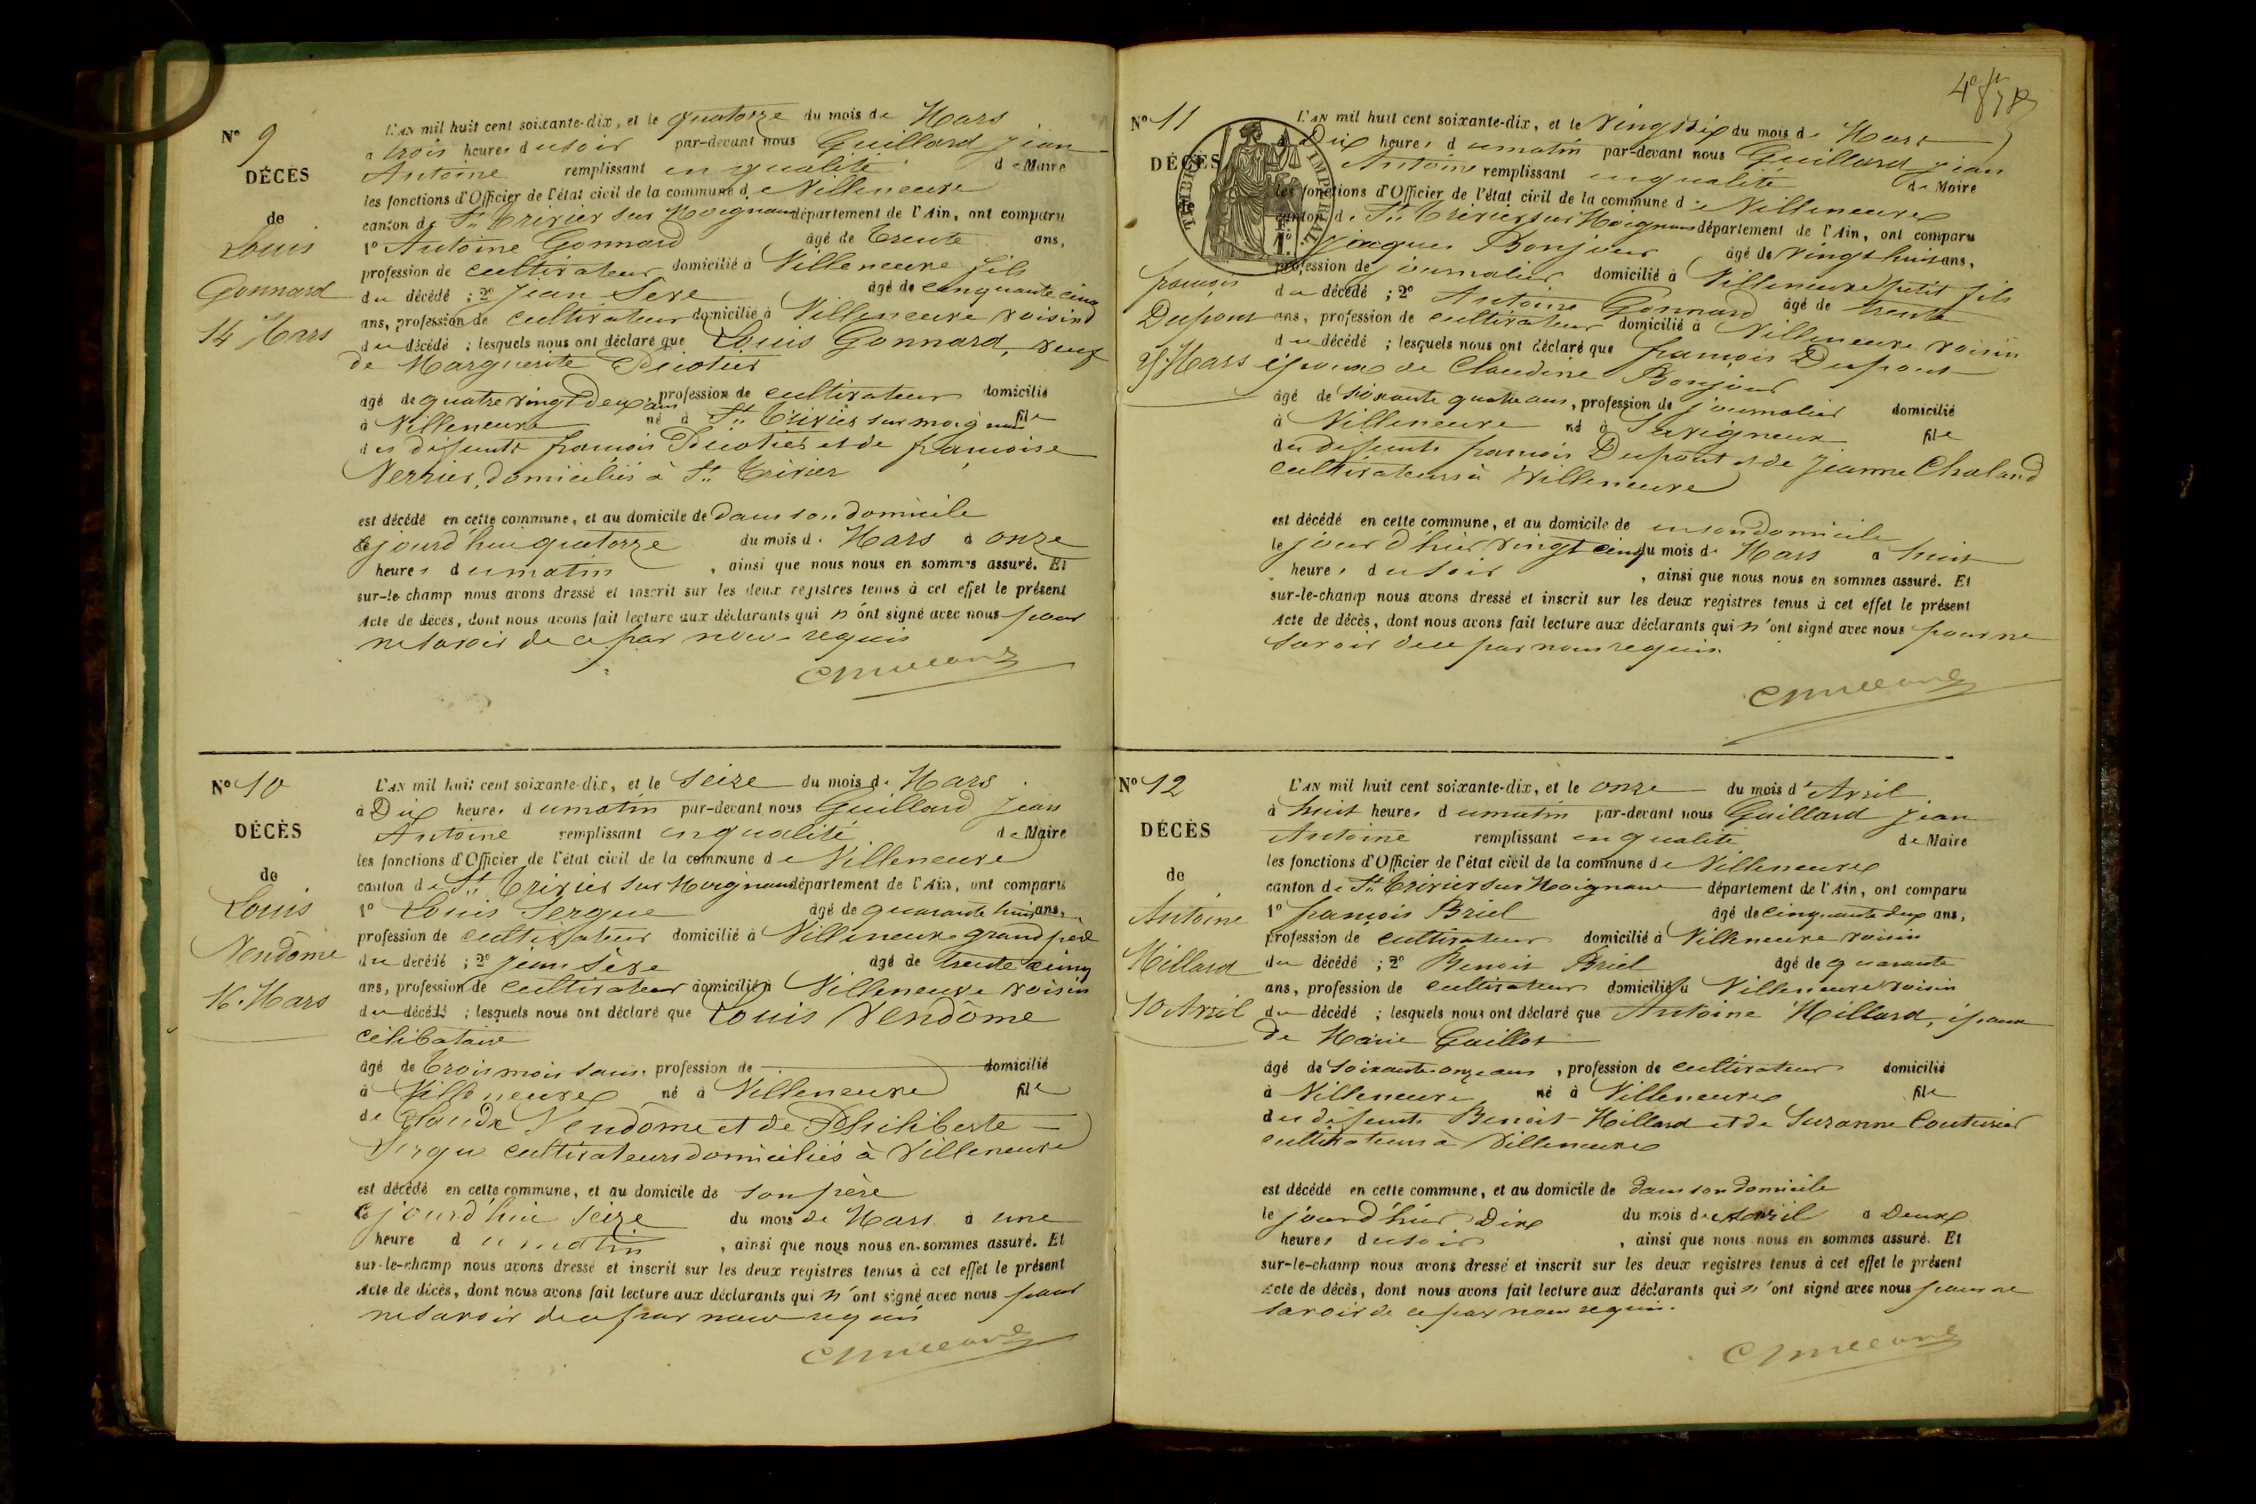 N° 9
DÉCÈS
de
Louis
Gonnard
14 Mars
L'AN mil huit cent soixante-dix, et le quatorze du mois de Mars
à trois heures du soir par-devant nous Guillard Jean
Antoine remplissant en qualité de Maire
les fonctions d'Officier de l'état civil de la commune de Villeneuve
canton de St Trivier sur Moignans département de l'Ain, ont comparu
1° Antoine Gonnard âgé de trente ans,
profession de cultivateur domicilié à Villeneuve fils
du décédé ; 2° Jean Seve âgé de cinquante cinq
ans, profession de cultivateur domicilié à Villeneuve voisin
du décédé ; lesquels nous ont déclaré que Louis Gonnard, veuf
de Marguerite Picotier
âgé de quatre vingt deux ans profession de cultivateur domicilié
à Villeneuve né à St Trivier sur moignans fils
des défunts françois Picotier et de françoise
Verrier, domiciliés à St Trivier
est décédé en cette commune, et au domicile de dans son domicile
ce jourd'hui quatorze du mois de Mars à onze
heures du matin, ainsi que nous nous en sommes assuré. Et
sur-le-champ nous avons dressé et inscrit sur les deux registres tenus à cet effet le présent
Acte de décès, dont nous avons fait lecture aux déclarants qui n'ont signé avec nous pour
ne savoir de ce par nous requis
Guillard
N° 10
DÉCÈS
de
Louis
Vendôme
16 Mars
L'AN mil huit cent soixante-dix, et le seize du mois de Mars
à Dix heures du matin par-devant nous Guillard Jean
Antoine remplissant en qualité de Maire
les fonctions d'Officier de l'état civil de la commune de Villeneuve
canton de St Trivier sur Moignans département de l'Ain, ont comparu
1° Louis Sergue âgé de quarante huit ans,
profession de cultivateur domicilié à Villeneuve grand père
du décédé ; 2° Jean Sève âgé de trente cinq
ans, profession de cultivateur domicilié à Villeneuve voisin
du décédé ; lesquels nous ont déclaré que Louis Vendôme
célibataire
âgé de trois mois sans profession de domicilié
à Villeneuve né à Villeneuve fils
de Claude Vendôme et de Philiberte
Sergue cultivateurs domiciliés à Villeneuve
est décédé en cette commune, et au domicile de son père
ce jourd'hui seize du mois de Mars à une
heure du matin, ainsi que nous nous en sommes assuré. Et
sur-le-champ nous avons dressé et inscrit sur les deux registres tenus à cet effet le présent
Acte de décès, dont nous avons fait lecture aux déclarants qui n'ont signé avec nous pour
ne savoir de ce par nous requis
Guillard
N° 11
DÉCÈS
TIMBRE IMPERIAL
françois
Dupont
25 Mars
L'AN mil huit cent soixante-dix, et le Vingt Six du mois de Mars
à Dix heures du matin par-devant nous Guillard Jean
Antoine remplissant en qualité de Maire
les fonctions d'Officier de l'état civil de la commune de Villeneuve
canton de St Trivier sur Moignans département de l'Ain, ont comparu
1° Jacques Bonjour âgé de vingt huit ans,
profession de journalier domicilié à Villeneuve petit fils
du décédé ; 2° Antoine Gonnard âgé de trente
ans, profession de cultivateur domicilié à Villeneuve voisin
du décédé ; lesquels nous ont déclaré que françois Dupont
époux de Claudine Bonjour
âgé de soixante quatre ans, profession de journalier domicilié
à Villeneuve né à Savigneux fils
des défunts françois Dupont et de Jeanne Chaland
cultivateurs à Villeneuve
est décédé en cette commune, et au domicile de en son domicile
le jour d'hier vingt cinq du mois de Mars à huit
heures du soir, ainsi que nous nous en sommes assuré. Et
sur-le-champ nous avons dressé et inscrit sur les deux registres tenus à cet effet le présent
Acte de décès, dont nous avons fait lecture aux déclarants qui n'ont signé avec nous pour ne
savoir de ce par nous requis.
Guillard
N° 12
DÉCÈS
de
Antoine
Millard
10 Avril
L'AN mil huit cent soixante-dix, et le onze du mois d'Avril
à huit heures du matin par-devant nous Guillard Jean
Antoine remplissant en qualité de Maire
les fonctions d'Officier de l'état civil de la commune de Villeneuve
canton de St Trivier sur Moignans département de l'Ain, ont comparu
1° françois Briel âgé de cinquante deux ans,
profession de cultivateur domicilié à Villeneuve voisin
du décédé ; 2° Benoit Briel âgé de quarante
ans, profession de cultivateur domicilié à Villeneuve voisin
du décédé ; lesquels nous ont déclaré que Antoine Millard, époux
de Marie Guillot
âgé de soixante onze ans, profession de cultivateur domicilié
à Villeneuve né à Villeneuve fils
des défunts Benoit Millard et de Suzanne Couturier
cultivateurs à Villeneuve
est décédé en cette commune, et au domicile de dans son domicile
le jour d'hier Dix du mois de Avril à Deux
heures du soir, ainsi que nous nous en sommes assuré. Et
sur-le-champ nous avons dressé et inscrit sur les deux registres tenus à cet effet le présent
Acte de décès, dont nous avons fait lecture aux déclarants qui n'ont signé avec nous pour ne
savoir de ce par nous requis.
Guillard